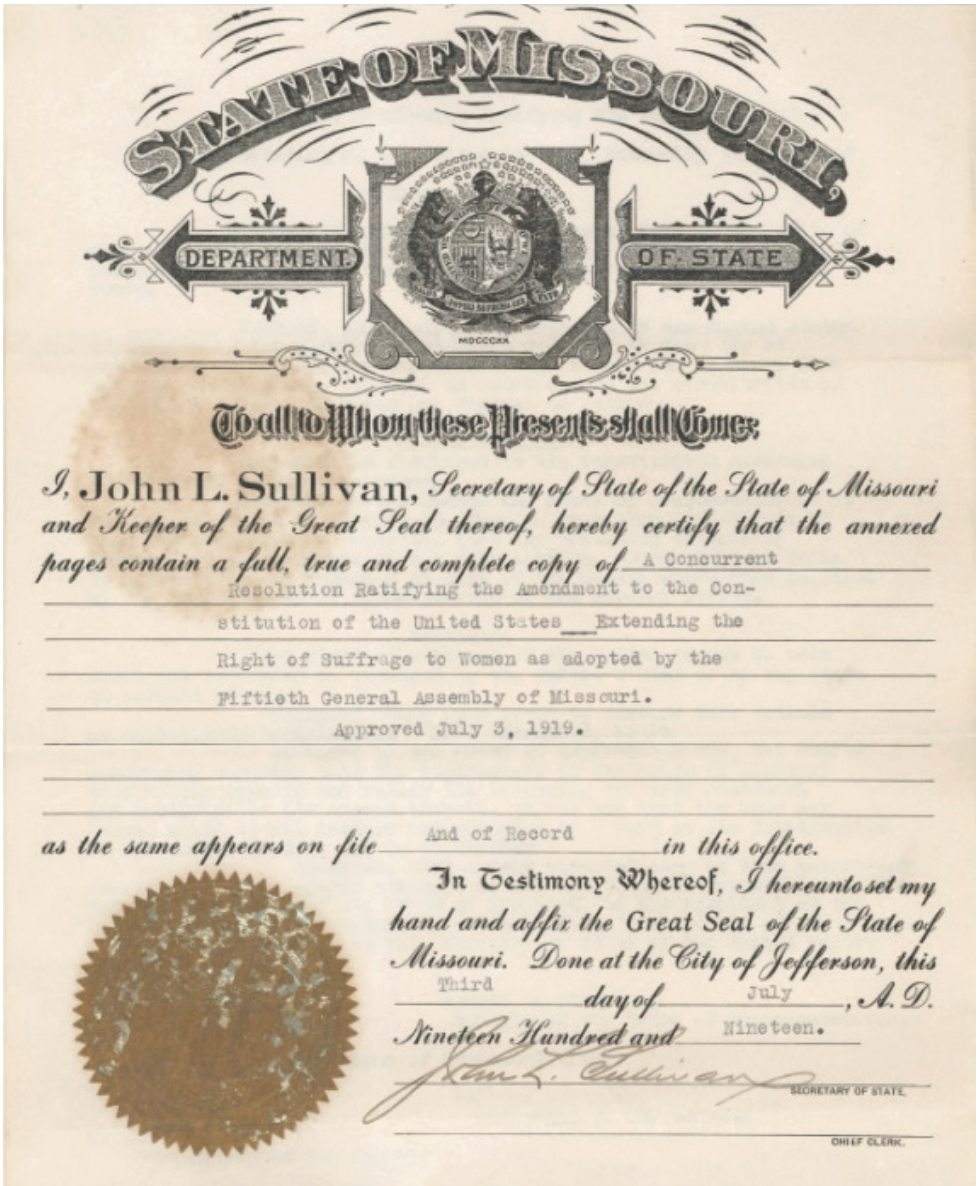 STATE OF MISSOURI,
DEPARTMENT OF STATE
MDCCCXX
To all to Whom these Presents shall Come:
I, John L. Sullivan, Secretary of State of the State of Missouri
and Keeper of the Great Seal thereof, hereby certify that the annexed
pages contain a full, true and complete copy of A Concurrent
Resolution Ratifying the Amendment to the Con-
stitution of the United States Extending the
Right of Suffrage to Women as adopted by the
Fiftieth General Assembly of Missouri.
Approved July 3, 1919.
as the same appears on file And of Record in this office.
In Testimony Whereof, I hereunto set my
hand and affix the Great Seal of the State of
Missouri. Done at the City of Jefferson, this
Third day of July, A. D.
Nineteen Hundred and Nineteen.
John L. Sullivan
SECRETARY OF STATE,
CHIEF CLERK.